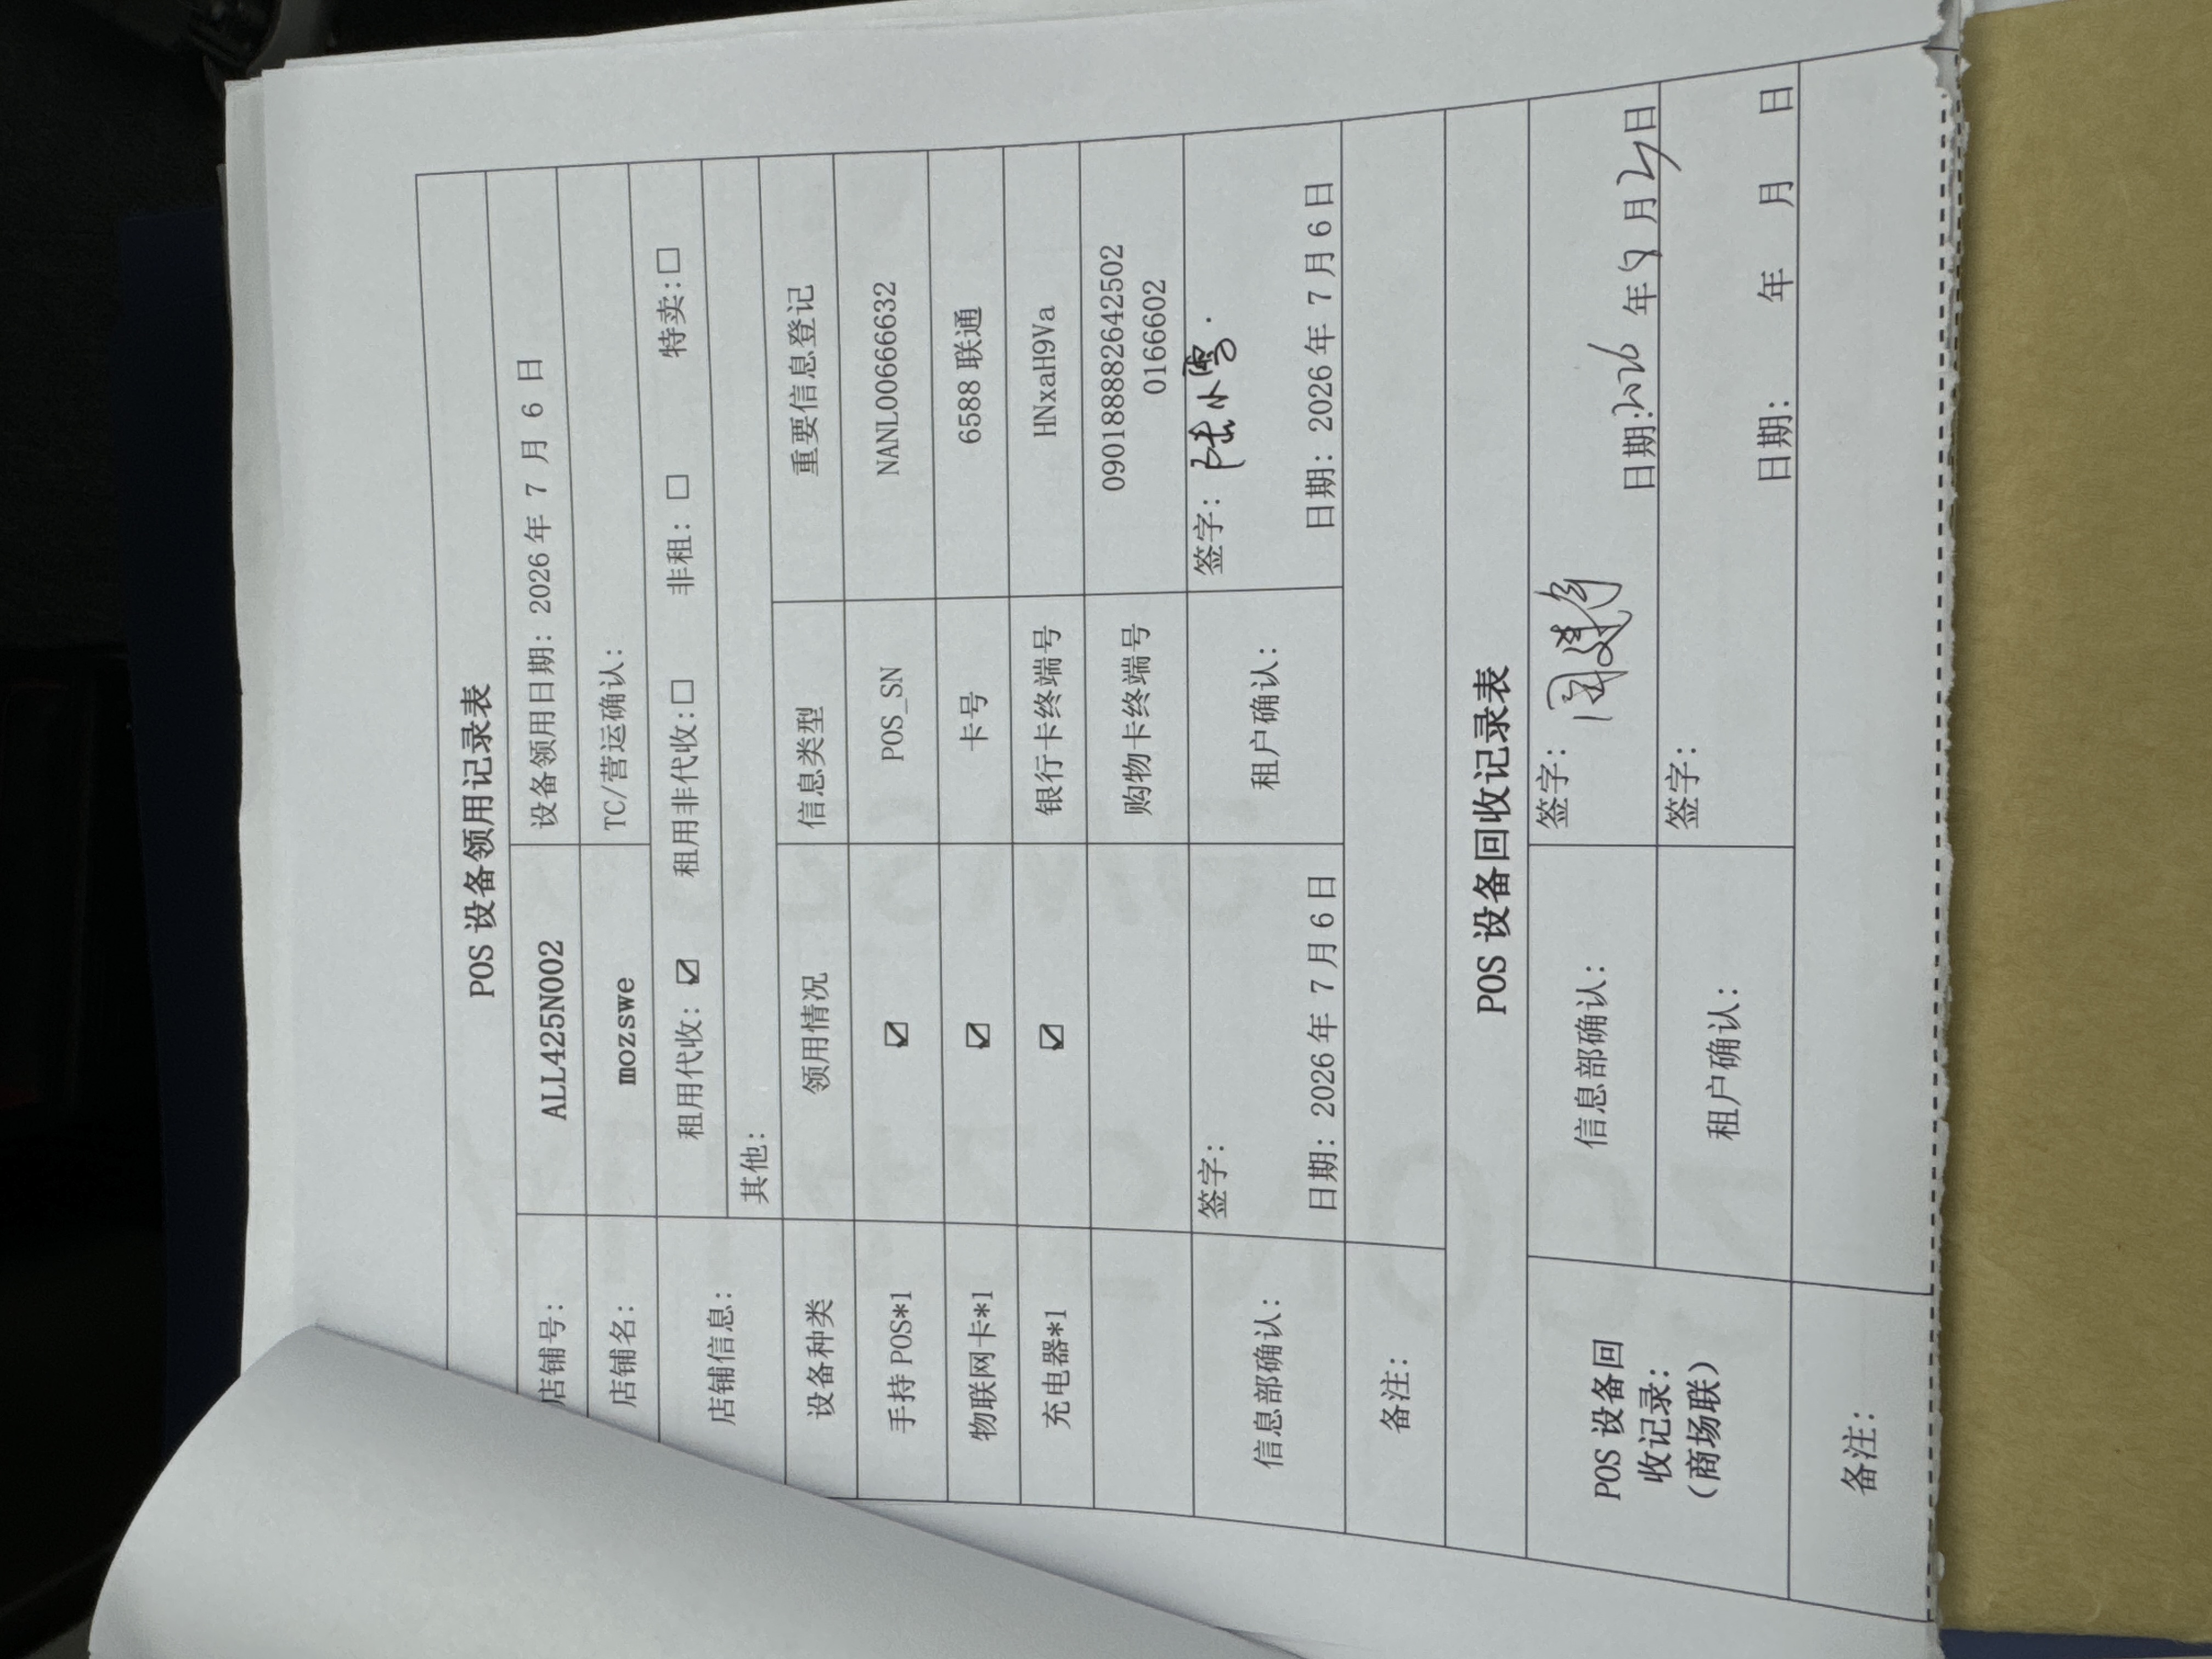 POS 设备领用记录表
店铺号： ALL425N002 设备领用日期：2026 年 7 月 6 日
店铺名： mozswe TC/营运确认：
店铺信息： 租用代收：☑ 租用非代收：□ 非租：□ 特卖：□
其他：
设备种类 领用情况 信息类型 重要信息登记
手持 POS*1 ☑ POS_SN NANL00666632
物联网卡*1 ☑ 卡号 6588 联通
充电器*1 ☑ 银行卡终端号 HNxaH9Va
购物卡终端号 090188882642502
0166602
信息部确认： 签字： 租户确认： 签字：陆小雪.
日期：2026 年 7 月 6 日 日期：2026 年 7 月 6 日
备注：
POS 设备回收记录表
POS 设备回
收记录：
（商场联）
信息部确认： 签字：
日期:2026 年 8 月 日
租户确认： 签字：
日期： 年 月 日
备注：